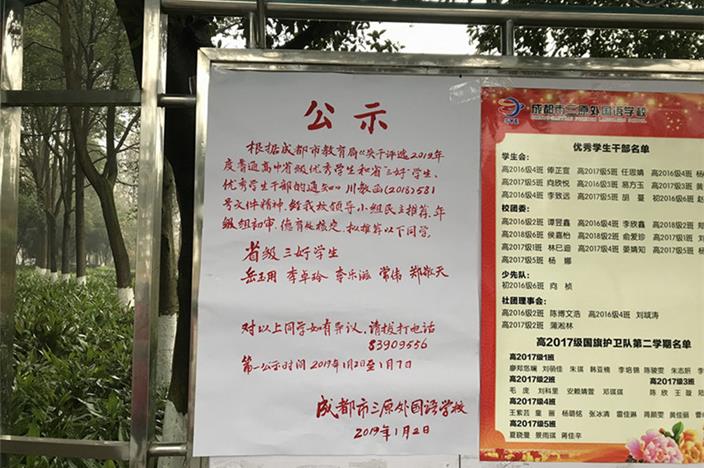 公示
根据成都市教育局《关于评选2019年
度普通高中省级优秀学生和省“三好”学生、
优秀学生干部的通知》川教函(2018)581
号文件精神,经我校领导小组民主推荐,年
级组初审,德育处核定,拟推荐以下同学。
省级三好学生
岳玉用 李卓玲 李乐派 常伟 郑敬天
对以上同学如有异议,请拨打电话
83909556
第一公示时间 2019年1月2日至1月7日
成都市三原外国语学校
2019年1月2日
成都市三原外国语学校
优秀学生干部名单
学生会:
高2016级4班 倬芷宣 高2017级5班 任思婧 高2016级4班
高2017级5班 向欣悦 高2016级3班 易方玉 高2017级3班
高2016级4班 李致远 高2017级5班 胡蔓 初2016级6班
校团委:
高2016级2班 谭昱鑫 高2016级4班 李欣鑫 高2018级2班
高2018级6班 侯嘉怡 高2018级2班 俞爱珍 高2017级1班
高2017级1班 林巳迪 高2017级4班 晏婧知 高2017级5班
高2017级5班 杨娜
少先队:
初2016级5班 向桢
社团理事会:
高2016级2班 陈博文浩 高2016级4班 刘珷涛
高2017级2班 蒲淞林
高2017级国旗护卫队第二学期名单
高2017级1班
廖郑悠斓 刘萌佳 朱琪 韩亚楠 李培锦 陈骏雯 朱志妍
高2017级2班 高2017级3班
毛庞 刘科里 安赖婧萱 邓琪琪 陈欣 王璇
高2017级4班
王紫芸 童丽 杨璐铭 张冰清 雷佳淋 肖颜雯 黄佳丽
高2017级5班
夏晓曼 景雨琪 蒋佳辛